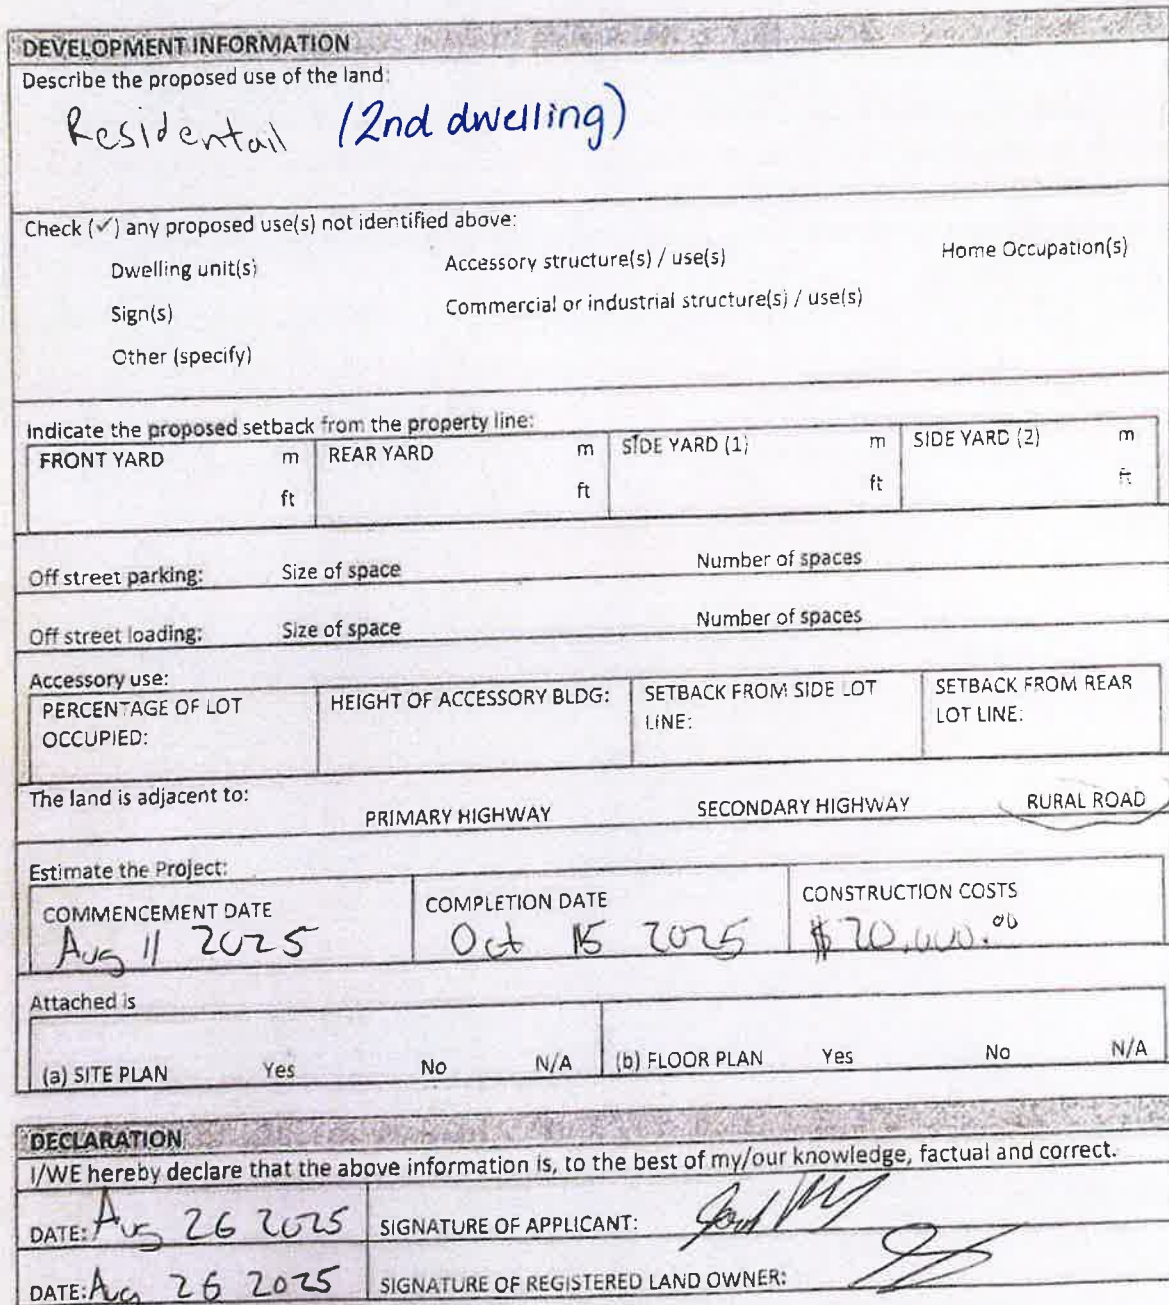 DEVELOPMENT INFORMATION
Describe the proposed use of the land:
Residentail (2nd dwelling)
Check (✓) any proposed use(s) not identified above:
Dwelling unit(s) Accessory structure(s) / use(s) Home Occupation(s)
Sign(s) Commercial or industrial structure(s) / use(s)
Other (specify)
Indicate the proposed setback from the property line:
FRONT YARD m REAR YARD m SIDE YARD (1) m SIDE YARD (2) m
ft ft ft ft
Off street parking: Size of space Number of spaces
Off street loading: Size of space Number of spaces
Accessory use:
PERCENTAGE OF LOT OCCUPIED: HEIGHT OF ACCESSORY BLDG: SETBACK FROM SIDE LOT LINE: SETBACK FROM REAR LOT LINE:
The land is adjacent to: PRIMARY HIGHWAY SECONDARY HIGHWAY RURAL ROAD
Estimate the Project:
COMMENCEMENT DATE COMPLETION DATE CONSTRUCTION COSTS
Aug 11 2025 Oct 15 2025 $20,000.00
Attached is
(a) SITE PLAN Yes No N/A (b) FLOOR PLAN Yes No N/A
DECLARATION
I/WE hereby declare that the above information is, to the best of my/our knowledge, factual and correct.
DATE: Aug 26 2025 SIGNATURE OF APPLICANT:
DATE: Aug 26 2025 SIGNATURE OF REGISTERED LAND OWNER: